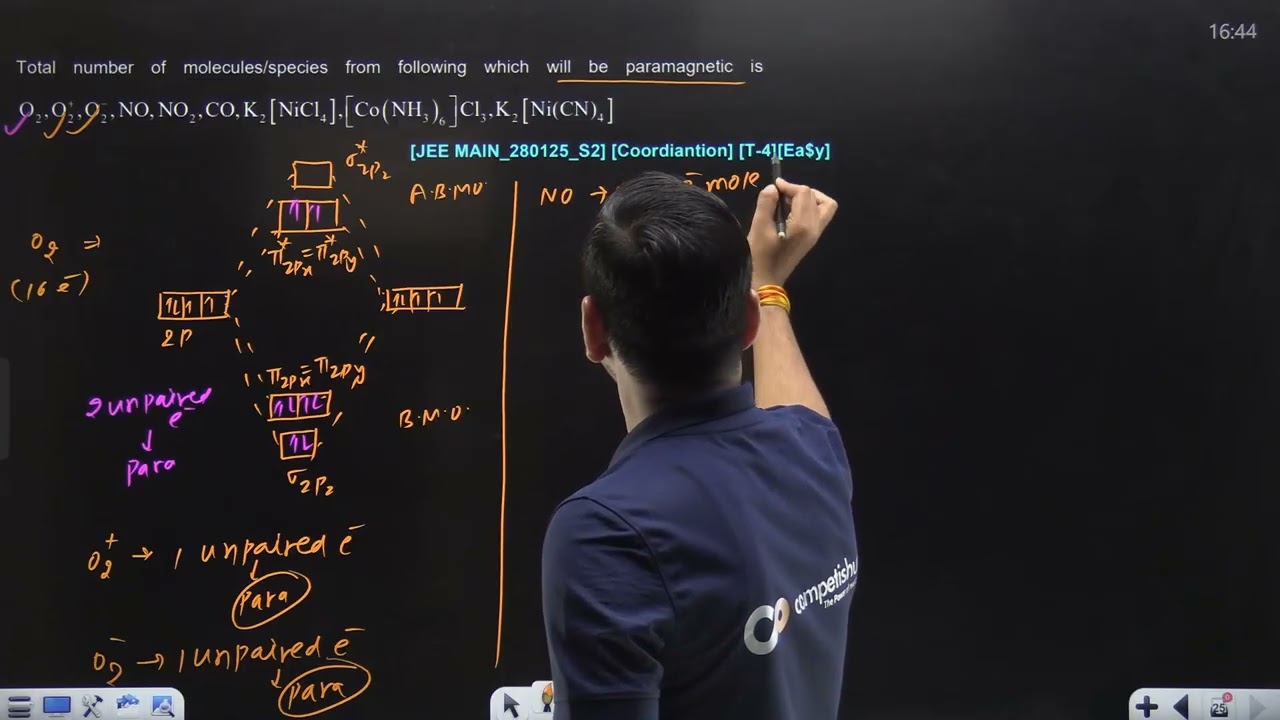 16:44
Total number of molecules/species from following which will be paramagnetic is
O₂, O₂⁺, O₂⁻, NO, NO₂, CO, K₂[NiCl₄], [Co(NH₃)₆]Cl₃, K₂[Ni(CN)₄]
[JEE MAIN_280125_S2] [Coordiantion] [T-4][Ea$y]
σ*2pz
A.B.M.O.
π*2px = π*2py
O₂ ⇒
(16 e⁻)
2p
π2px = π2py
B.M.O.
σ2pz
2 unpaired e⁻
↓
para
O₂⁺ → 1 unpaired e⁻
↓
para
O₂⁻ → 1 unpaired e⁻
↓
para
NO →
e⁻ mole
competishu
The Power of
25